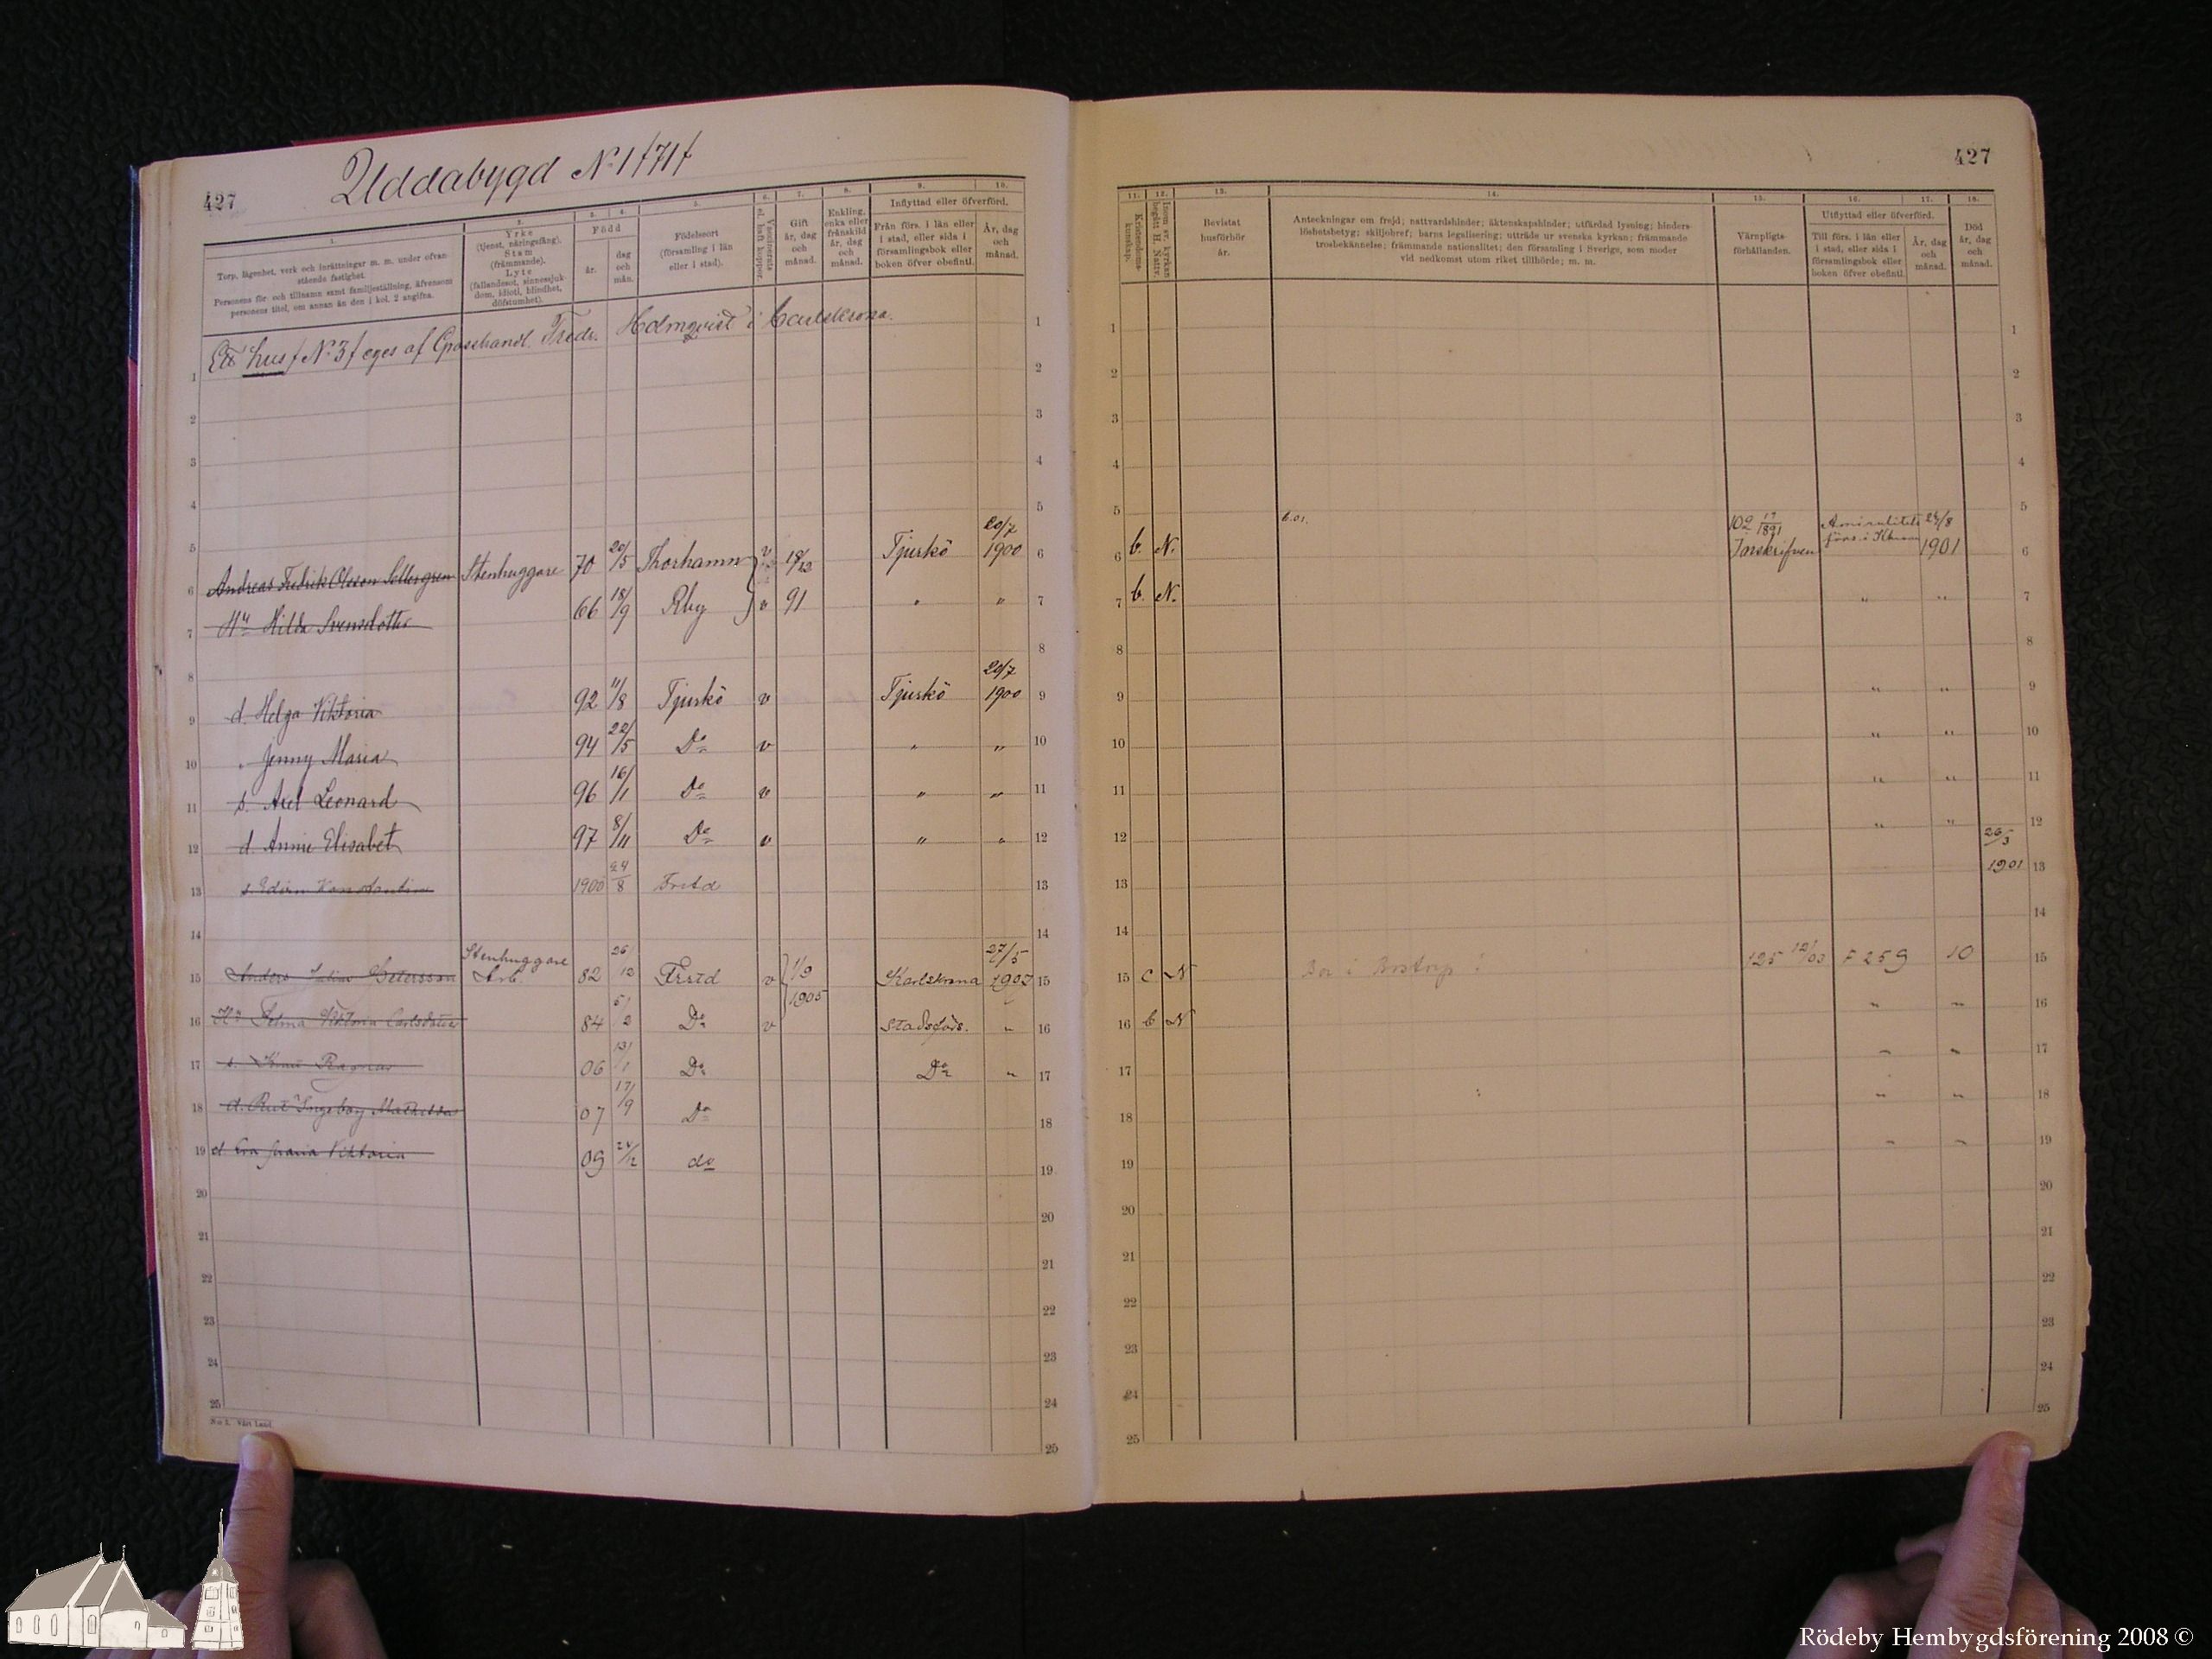 427
Uddabygd No 1 f 71 f
1.
Torp, lägenhet, verk och inrättningar m. m. under ofvan
stående fastighet.
Personens för- och tillnamn samt familjeställning, äfvensom
personens titel, om annan än den i kol. 2 angifna.
2.
Yrke
(tjenst, näringsfång).
Stam
(främmande).
Lyte
(fallandesot, sinnessjuk-
dom, idioti, blindhet,
döfstumhet).
3. 4.
Född
år.
dag
och
mån.
5.
Födelseort
(församling i län
eller i stad).
6.
Vaccinerade
el. haft koppor.
7.
Gift
år, dag
och
månad.
8.
Enkling,
enka eller
frånskild
år, dag
och
månad.
9. 10.
Inflyttad eller öfverförd.
Från förs. i län eller
i stad, eller sida i
församlingsbok eller
boken öfver obefintl.
År, dag
och
månad.
Ett hus f No 3 f eges af Grosshandl. Fredr. Holmqvist i Carlskrona.
6 Andreas Fredrik Olsson Sellergren Stenhuggare 70 20/5 Thorhamn v 18/12 Tjurkö 20/7 1900 6
7 Hu Hilda Svensdotter 66 18/9 Rby v 91 " " 7
9 d. Helga Viktoria 92 11/8 Tjurkö v Tjurkö 20/7 1900 9
10 " Jenny Maria 94 22/5 Do v " " 10
11 s. Axel Leonard 96 16/1 Do v " " 11
12 d. Annie Elisabet 97 8/11 Do v " " 12
13 s. Edvin 1900 24/8 Frstd 13
15 Anders Petersson Stenhuggare Arb. 82 26/12 Frstd v 1/9 1905 Karlskrona 27/5 1907 15
16 Hu Selma Viktoria Carlsdotter 84 5/2 Do v stadsförs. " 16
17 s. Ragnar 06 13/1 Do Do " 17
18 d. Rut Ingeborg Mathilda 07 17/9 Do 18
19 d. Eva Maria Viktoria 09 do 19
No 2. Vårt Land.
427
11.
Kristendoms-
kunskap.
12.
Inom sv. kyrkan
begått H. Nattv.
13.
Bevistat
husförhör
år.
14.
Anteckningar om frejd; nattvardshinder; äktenskapshinder; utfärdad lysning; hinders-
löshetsbetyg; skiljobref; barns legalisering; utträde ur svenska kyrkan; främmande
trosbekännelse; främmande nationalitet; den församling i Sverige, som moder
vid nedkomst utom riket tillhörde; m. m.
15.
Värnpligts-
förhållanden.
16. 17.
Utflyttad eller öfverförd.
Till förs. i län eller
i stad, eller sida i
församlingsbok eller
boken öfver obefintl.
År, dag
och
månad.
18.
Död
år, dag
och
månad.
6 b. N. b.01. 102 17/1891 Inskrifven Amiralitets förs. i Kkrona 24/8 1901 6
7 b. N. " " 7
9 " " 9
10 " " 10
11 " " 11
12 " " 12
13 26/3 1901 13
15 c N Bor i Rostorp ! 125 12/03 F 259 10 15
16 b N " " 16
17 " " 17
18 " " 18
19 " " 19
Rödeby Hembygdsförening 2008 ©